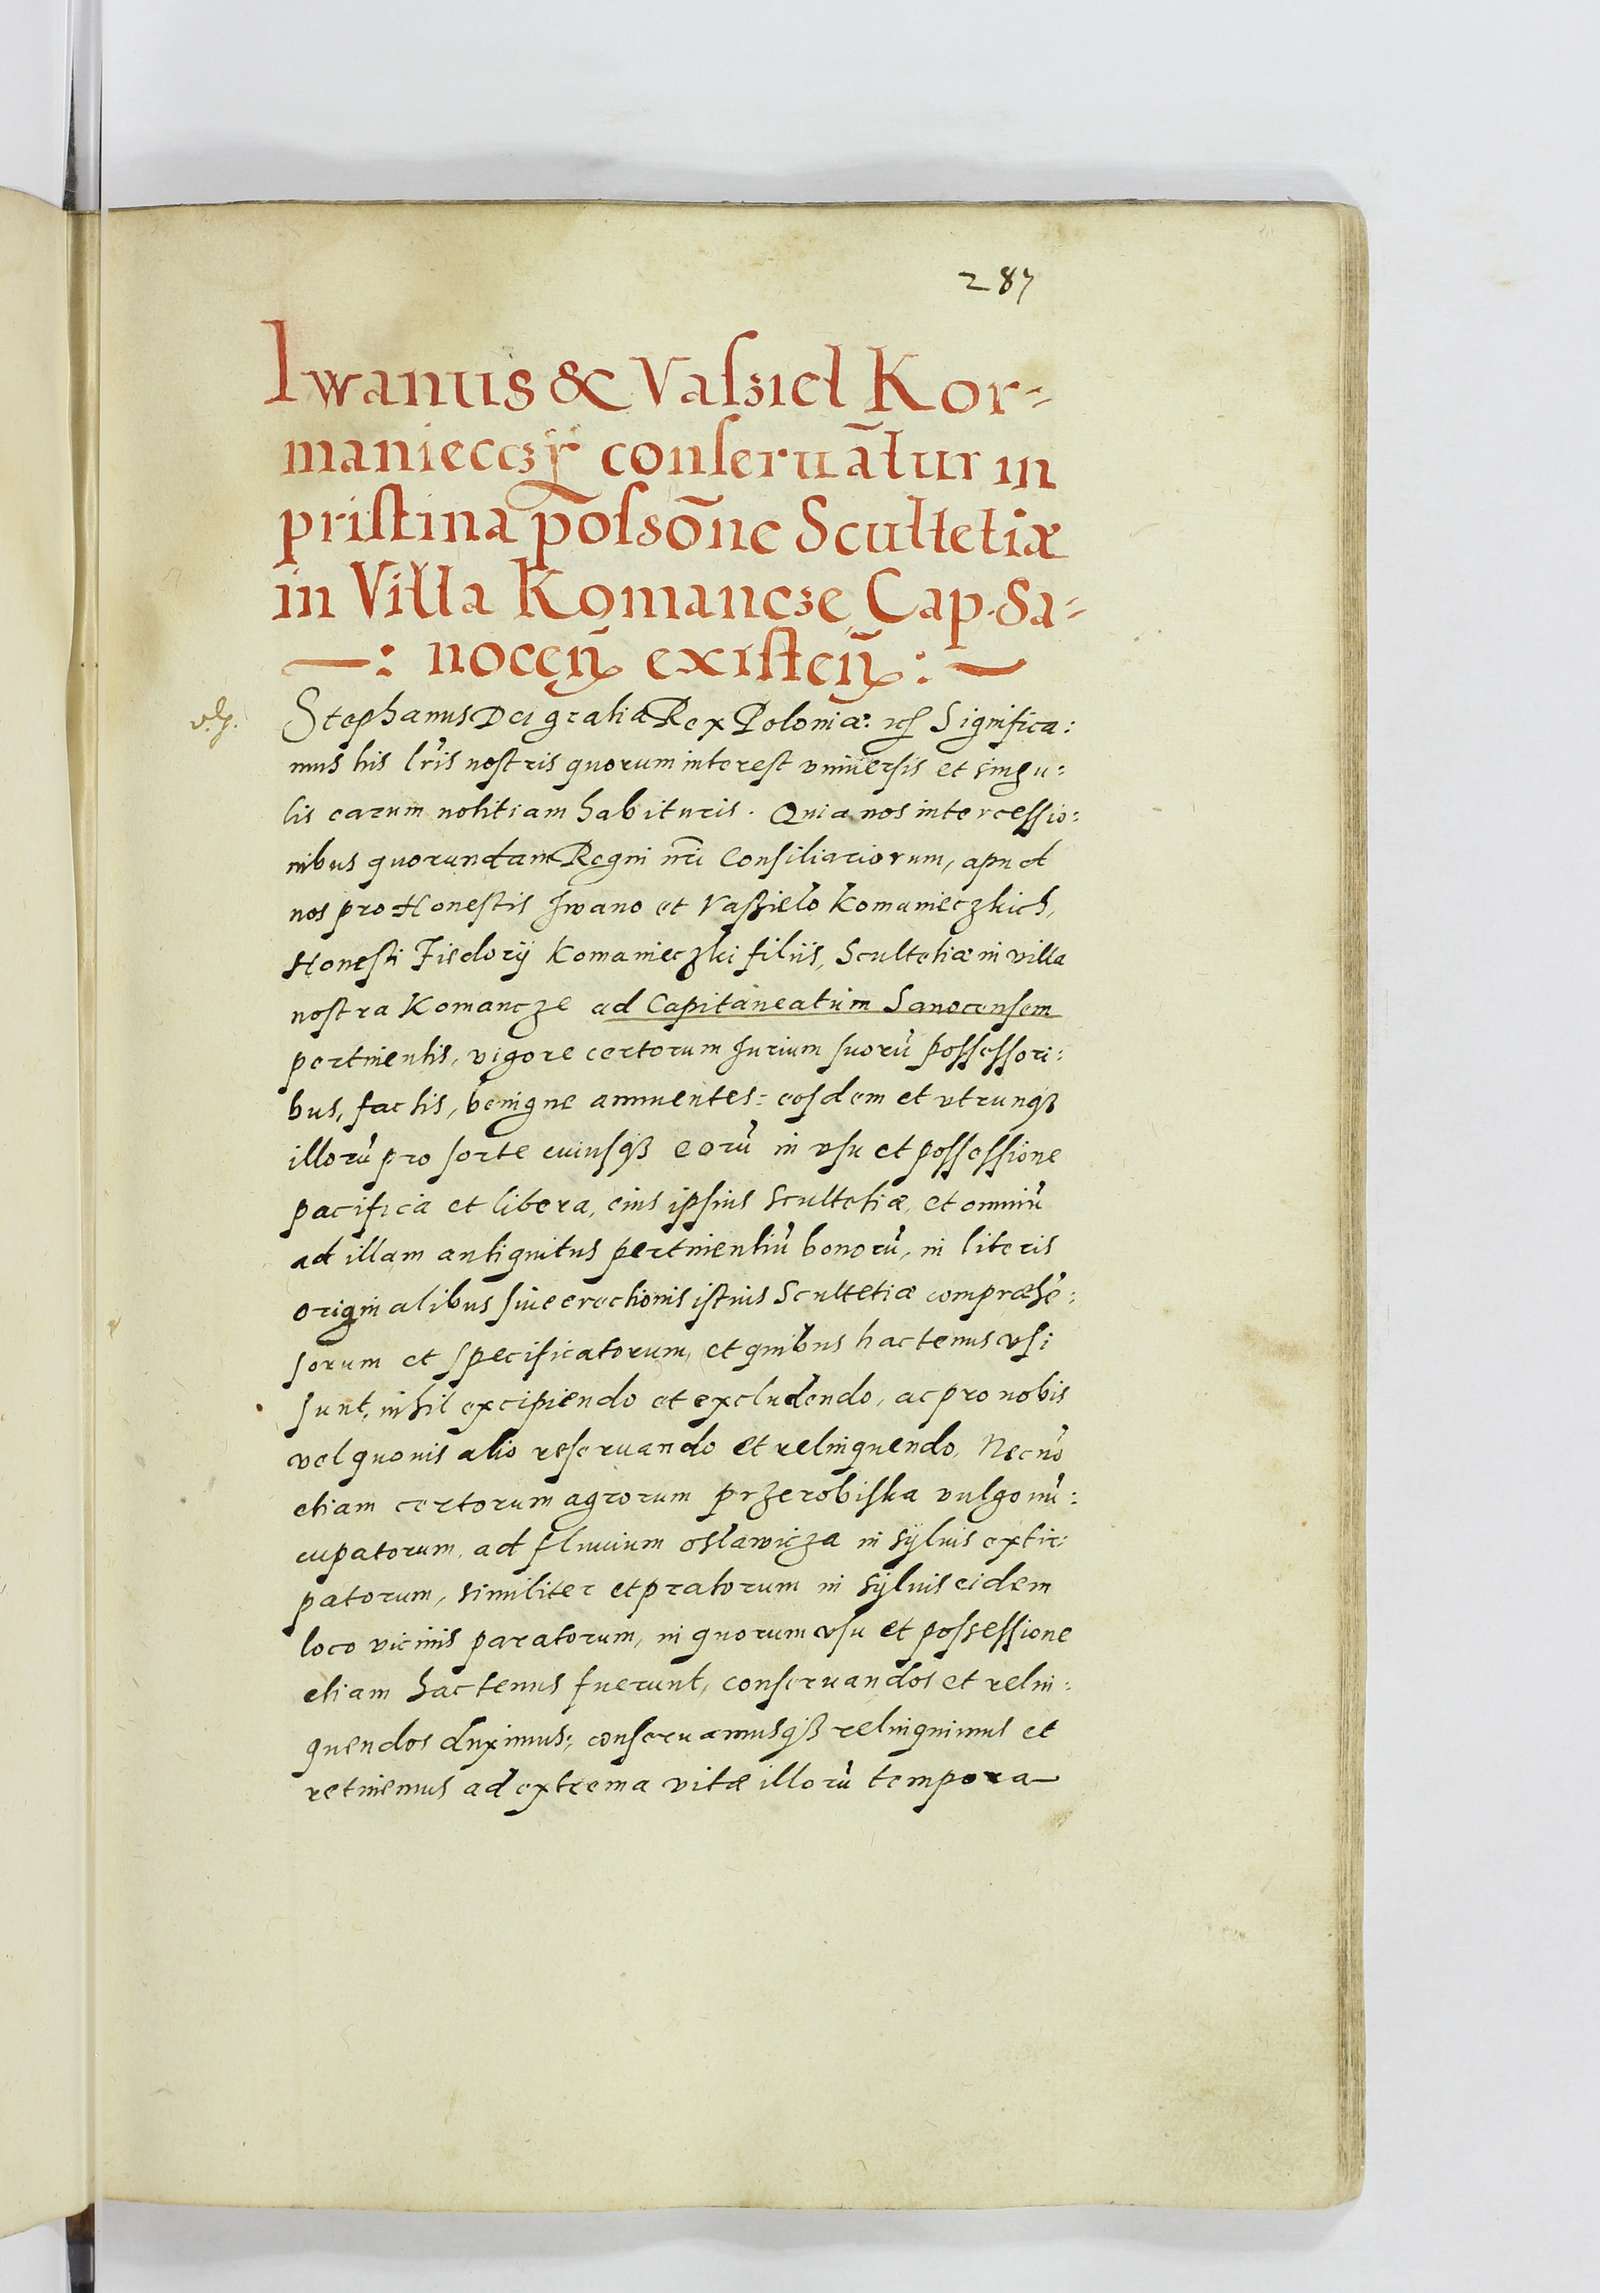 287
Iwanus & Vaſziel Kor-
manieczy conſeruãtur in
priſtina poſsõne Scultetiæ
in Villa Komancze Cap. Sa-
—: noceñ exiſteñ: —
Stephanus Dei gratia Rex Poloniæ: Significa:
mus his lris nostris quorum interest vniuersis et singu:
lis earum notitiam habituris. Quia nos intercessio:
nibus quorundam Regni nri Consiliariorum, apud
nos pro Honestis Iwano et Vaßielo Komanieczkich,
Honesti Fiedorij Komanieczki filiis, Scultetiæ in villa
nostra Komancze ad Capitaneatum Sanocensem
pertinentis, vigore certorum Iurium suorũ possessori:
bus, factis, benigne annuentes: eosdem et vtrunqȝ
illorũ pro sorte cuiusqȝ eorũ in vsu et possessione
pacifica et libera, eius ipsius Scultetiæ, et omniũ
ad illam antiquitus pertinentiũ bonorũ, in literis
originalibus siue erectionis istius Scultetiæ compræhẽ:
sorum et specificatorum, et quibus hactenus vsi
sunt, nihil excipiendo et excludendo, ac pro nobis
vel quouis alio reseruando et relinquendo, Necnõ
etiam certorum agrorum przerobiska vulgo nũ:
cupatorum, ad fluuium oslawicza in syluis extir:
patorum, similiter et pratorum in syluis eidem
loco vicinis paratorum, in quorum vsu et possessione
etiam hactenus fuerunt, conseruandos et relin:
quendos duximus; conseruamusqȝ relinquimus et
retinemus ad extrema vitæ illorũ tempora